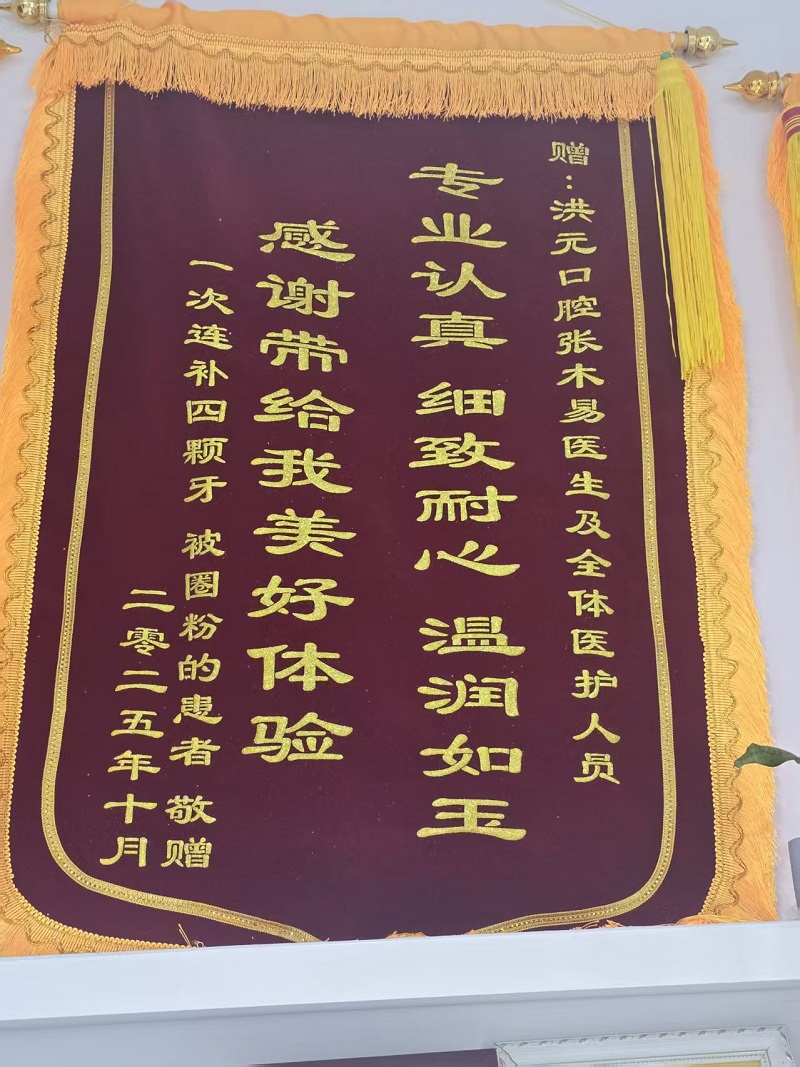 赠：洪元口腔张木易医生及全体医护人员
专业认真 细致耐心 温润如玉
感谢带给我美好体验
一次连补四颗牙 被圈粉的患者 敬赠
二零二五年十月